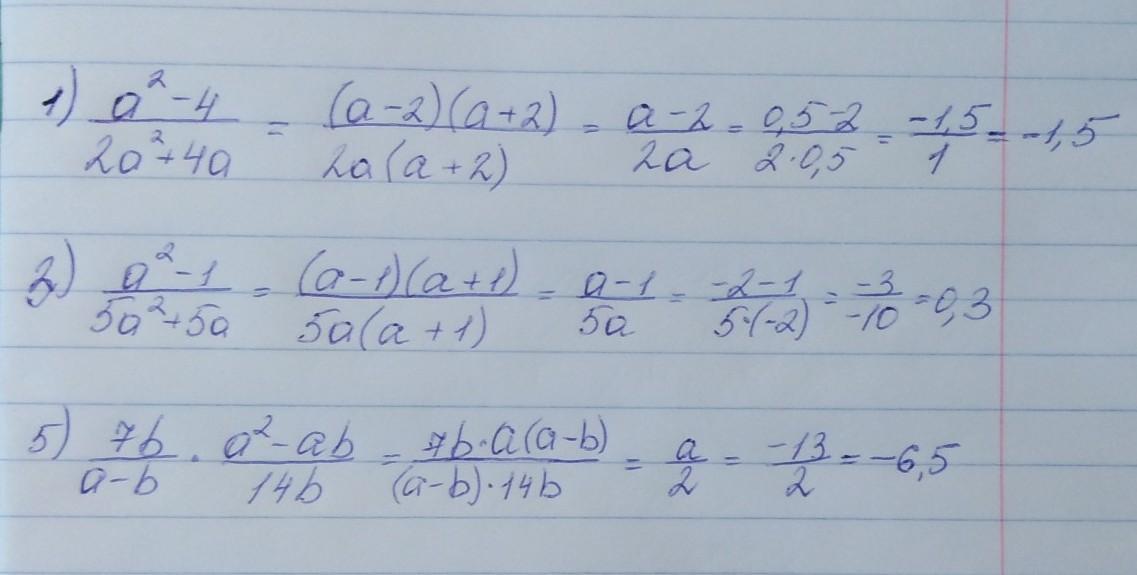 1) \frac{a^2-4}{2a^2+4a} = \frac{(a-2)(a+2)}{2a(a+2)} = \frac{a-2}{2a} = \frac{0,5-2}{2·0,5} = \frac{-1,5}{1} = -1,5
3) \frac{a^2-1}{5a^2+5a} = \frac{(a-1)(a+1)}{5a(a+1)} = \frac{a-1}{5a} = \frac{-2-1}{5·(-2)} = \frac{-3}{-10} = 0,3
5) \frac{7b}{a-b} · \frac{a^2-ab}{14b} = \frac{7b·a(a-b)}{(a-b)·14b} = \frac{a}{2} = \frac{-13}{2} = -6,5